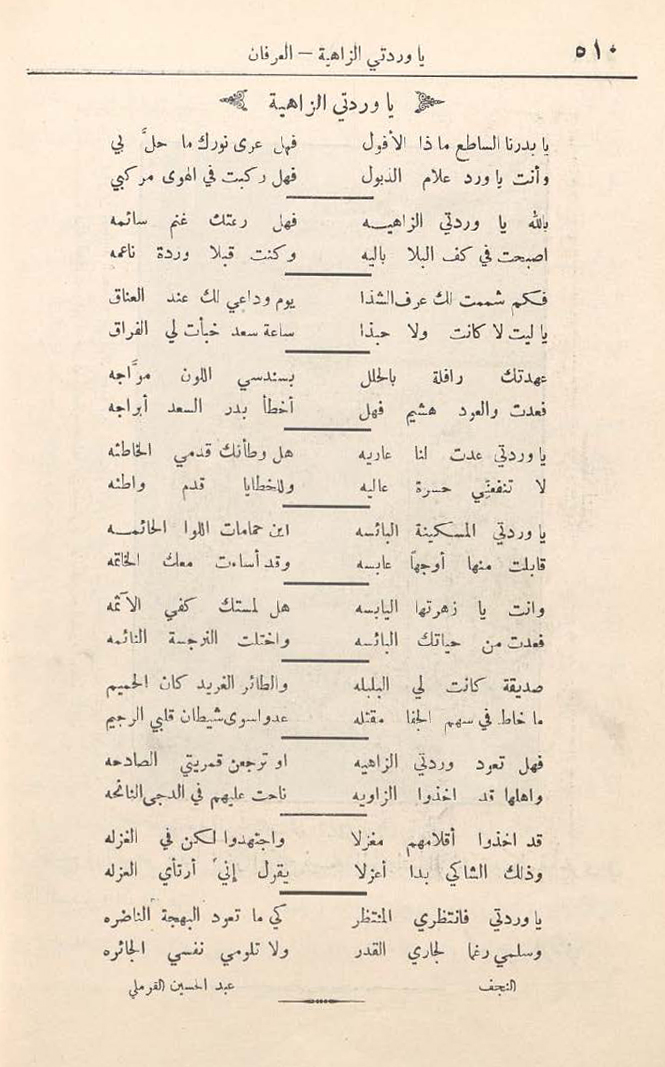 ٥١٠ يا وردتي الزاهية – العرفان
يا وردتي الزاهية
يا بدرنا الساطع ما ذا الأفول فهل عرى نورك ما حلَّ بي
وأنت يا ورد علام الذبول فهل ركبت في الهوى مركبي
بالله يا وردتي الزاهيـه فهل رعتك غنم سائمه
اصبحت في كف البلا باليه وكنت قبلا وردة ناعمه
فكم شممت لك عرف الشذا يوم وداعي لك عند العناق
يا ليت لا كانت ولا حبذا ساعة سعد خبأت لي الفراق
عهدتك رافلة بالحلل بسندسي اللون موَّاجه
فعدت والعود هشيم فهل أخطأ بدر السعد أبراجه
يا وردتي عدت لنا عاريه هل وطأتك قدمي الخاطئه
لا تنفعنِّي حسرة عاليه وللخطايا قدم واطئه
يا وردتي المسكينة البائسه اين حمامات اللوا الحائمـه
قابلت منها أوجهاً عابسه وقد أساءت معك الخاتمه
وانت يا زهرتها اليابسه هل لمستك كفي الآثمه
فعدت من حياتك البائسه واختلت النرجسة النائمه
صديقة كانت لي البلبله والطائر الغريد كان الحميم
ما خاط في سهم الجفا مقتله عدوا سوى شيطان قلبي الرجيم
فهل تعود وردتي الزاهيه او ترجعن قمريتي الصادحه
واهلها قد اخذوا الزاويه ناحت عليهم في الدجى النائحه
قد اخذوا أقلامهم مغزلا واجتهدوا لكن في الغزله
وذلك الشاكي بدا أعزلا يقول إنيَ أرتأي العزله
يا وردتي فانتظري المنتظر كي ما تعود البهجة الناضره
وسلمي رغما لجاري القدر ولا تلومي نفسي الجائره
النجف عبد الحسين القرملي